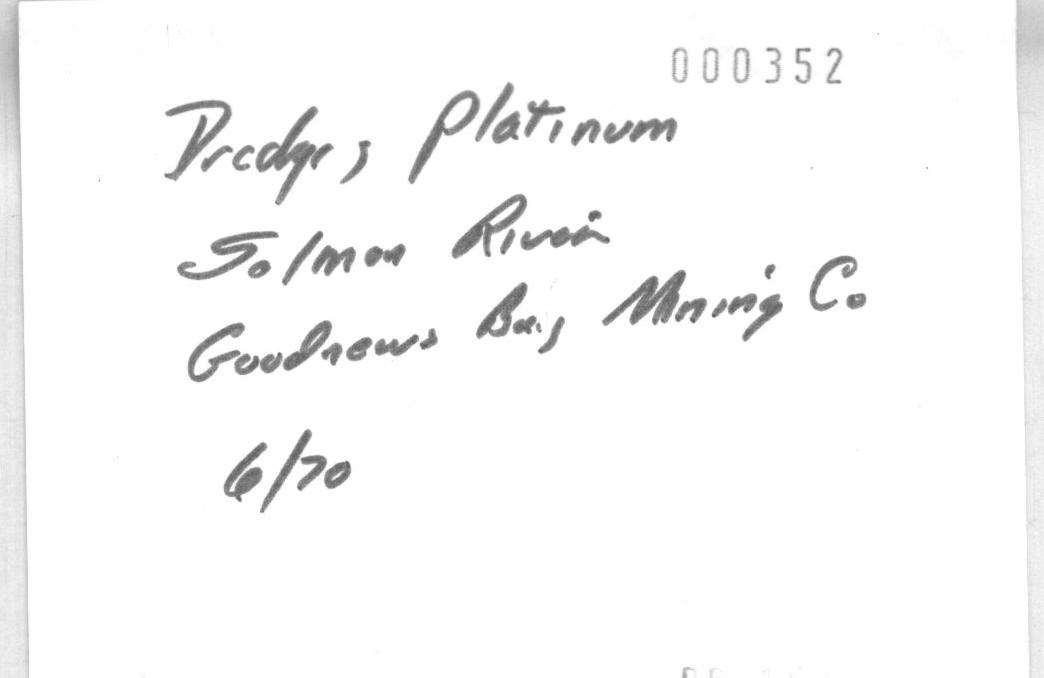 000352
Dredge, Platinum
Salmon River
Goodnews Bay Mining Co
6/70